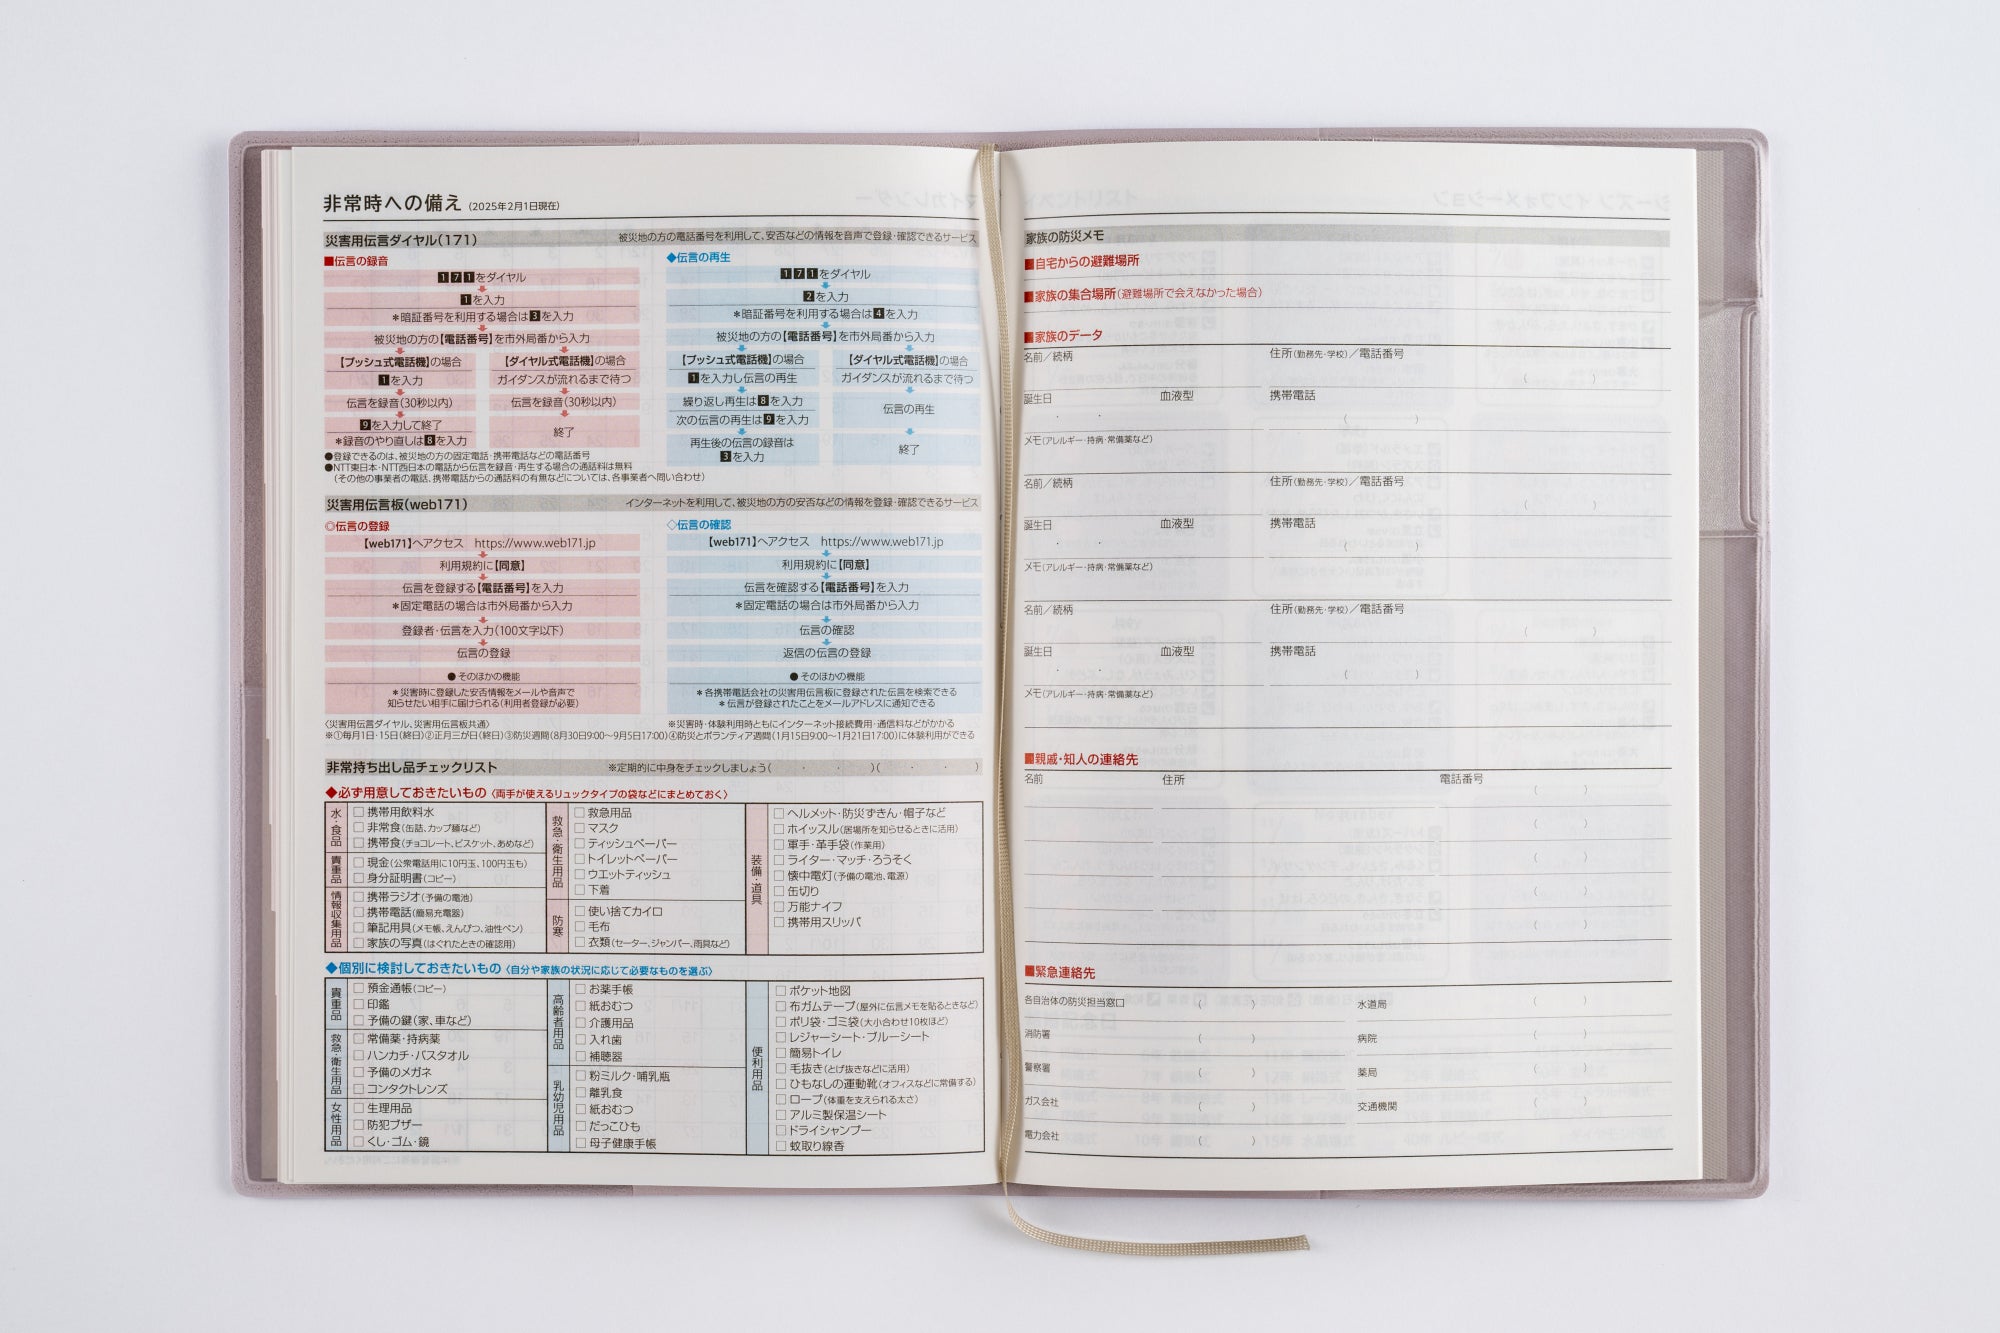 非常時への備え(2025年2月1日現在)
災害用伝言ダイヤル(171) 被災地の方の電話番号を利用して、安否などの情報を音声で登録・確認できるサービス
■伝言の録音
171をダイヤル
1を入力
*暗証番号を利用する場合は3を入力
被災地の方の【電話番号】を市外局番から入力
【プッシュ式電話機】の場合
1を入力
伝言を録音(30秒以内)
9を入力して終了
*録音のやり直しは8を入力
【ダイヤル式電話機】の場合
ガイダンスが流れるまで待つ
伝言を録音(30秒以内)
終了
◆伝言の再生
171をダイヤル
2を入力
*暗証番号を利用する場合は4を入力
被災地の方の【電話番号】を市外局番から入力
【プッシュ式電話機】の場合
1を入力し伝言の再生
繰り返し再生は8を入力
次の伝言の再生は9を入力
再生後の伝言の録音は
3を入力
【ダイヤル式電話機】の場合
ガイダンスが流れるまで待つ
伝言の再生
終了
●登録できるのは、被災地の方の固定電話・携帯電話などの電話番号
●NTT東日本・NTT西日本の電話から伝言を録音・再生する場合の通話料は無料
(その他の事業者の電話、携帯電話からの通話料の有無などについては、各事業者へ問い合わせ)
災害用伝言板(web171) インターネットを利用して、被災地の方の安否などの情報を登録・確認できるサービス
◎伝言の登録
【web171】へアクセス https://www.web171.jp
利用規約に【同意】
伝言を登録する【電話番号】を入力
*固定電話の場合は市外局番から入力
登録者・伝言を入力(100文字以下)
伝言の登録
●そのほかの機能
*災害時に登録した安否情報をメールや音声で
知らせたい相手に届けられる(利用者登録が必要)
◇伝言の確認
【web171】へアクセス https://www.web171.jp
利用規約に【同意】
伝言を確認する【電話番号】を入力
*固定電話の場合は市外局番から入力
伝言の確認
返信の伝言の登録
●そのほかの機能
*各携帯電話会社の災害用伝言板に登録された伝言を検索できる
*伝言が登録されたことをメールアドレスに通知できる
〈災害用伝言ダイヤル、災害用伝言板共通〉 ※災害時・体験利用時ともにインターネット接続費用・通信料などがかかる
※①毎月1日・15日(終日)②正月三が日(終日)③防災週間(8月30日9:00〜9月5日17:00)④防災とボランティア週間(1月15日9:00〜1月21日17:00)に体験利用ができる
非常持ち出し品チェックリスト ※定期的に中身をチェックしましょう( ・ ・ )( ・ ・ )
◆必ず用意しておきたいもの〈両手が使えるリュックタイプの袋などにまとめておく〉
水・食品
□携帯用飲料水
□非常食(缶詰、カップ麺など)
□携帯食(チョコレート、ビスケット、あめなど)
貴重品
□現金(公衆電話用に10円玉、100円玉も)
□身分証明書(コピー)
情報収集用品
□携帯ラジオ(予備の電池)
□携帯電話(簡易充電器)
□筆記用具(メモ帳、えんぴつ、油性ペン)
□家族の写真(はぐれたときの確認用)
救急・衛生用品
□救急用品
□マスク
□ティッシュペーパー
□トイレットペーパー
□ウエットティッシュ
□下着
防寒
□使い捨てカイロ
□毛布
□衣類(セーター、ジャンパー、雨具など)
装備・道具
□ヘルメット・防災ずきん・帽子など
□ホイッスル(居場所を知らせるときに活用)
□軍手・革手袋(作業用)
□ライター・マッチ・ろうそく
□懐中電灯(予備の電池、電源)
□缶切り
□万能ナイフ
□携帯用スリッパ
◆個別に検討しておきたいもの〈自分や家族の状況に応じて必要なものを選ぶ〉
貴重品
□預金通帳(コピー)
□印鑑
□予備の鍵(家、車など)
救急・衛生用品
□常備薬・持病薬
□ハンカチ・バスタオル
□予備のメガネ
□コンタクトレンズ
女性用品
□生理用品
□防犯ブザー
□くし・ゴム・鏡
高齢者用品
□お薬手帳
□紙おむつ
□介護用品
□入れ歯
□補聴器
乳幼児用品
□粉ミルク・哺乳瓶
□離乳食
□紙おむつ
□だっこひも
□母子健康手帳
便利用品
□ポケット地図
□布ガムテープ(屋外に伝言メモを貼るときなど)
□ポリ袋・ゴミ袋(大小合わせ10枚ほど)
□レジャーシート・ブルーシート
□簡易トイレ
□毛抜き(とげ抜きなどに活用)
□ひもなしの運動靴(オフィスなどに常備する)
□ロープ(体重を支えられる太さ)
□アルミ製保温シート
□ドライシャンプー
□蚊取り線香
家族の防災メモ
■自宅からの避難場所
■家族の集合場所(避難場所で会えなかった場合)
■家族のデータ
名前/続柄 住所(勤務先・学校)/電話番号
( )
誕生日 血液型 携帯電話
・ ・ ( )
メモ(アレルギー・持病・常備薬など)
名前/続柄 住所(勤務先・学校)/電話番号
( )
誕生日 血液型 携帯電話
・ ・ ( )
メモ(アレルギー・持病・常備薬など)
名前/続柄 住所(勤務先・学校)/電話番号
( )
誕生日 血液型 携帯電話
・ ・ ( )
メモ(アレルギー・持病・常備薬など)
■親戚・知人の連絡先
名前 住所 電話番号
( )
( )
( )
( )
( )
■緊急連絡先
各自治体の防災担当窓口 ( ) 水道局 ( )
消防署 ( ) 病院 ( )
警察署 ( ) 薬局 ( )
ガス会社 ( ) 交通機関 ( )
電力会社 ( )